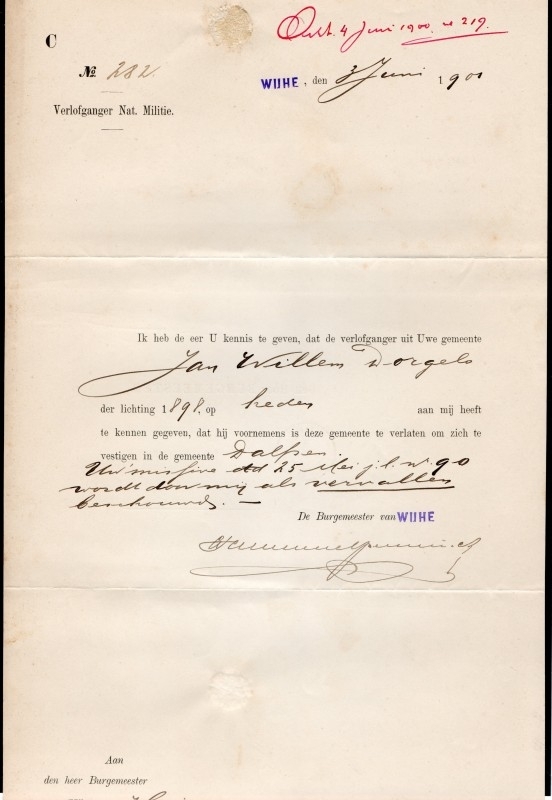 Ontv. 4 Juni 1900 no 219.
C
No 282.
WIJHE, den 3 Juni 1900
Verlofganger Nat. Militie.
Ik heb de eer U kennis te geven, dat de verlofganger uit Uwe gemeente
Jan Willem Dorgelo
der lichting 1898, op heden aan mij heeft
te kennen gegeven, dat hij voornemens is deze gemeente te verlaten om zich te
vestigen in de gemeente Dalfsen.
Uw missive dd 25 Mei j.l. no. 90
wordt door mij als vervallen
beschouwd. —
De Burgemeester van WIJHE
Aan
den heer Burgemeester